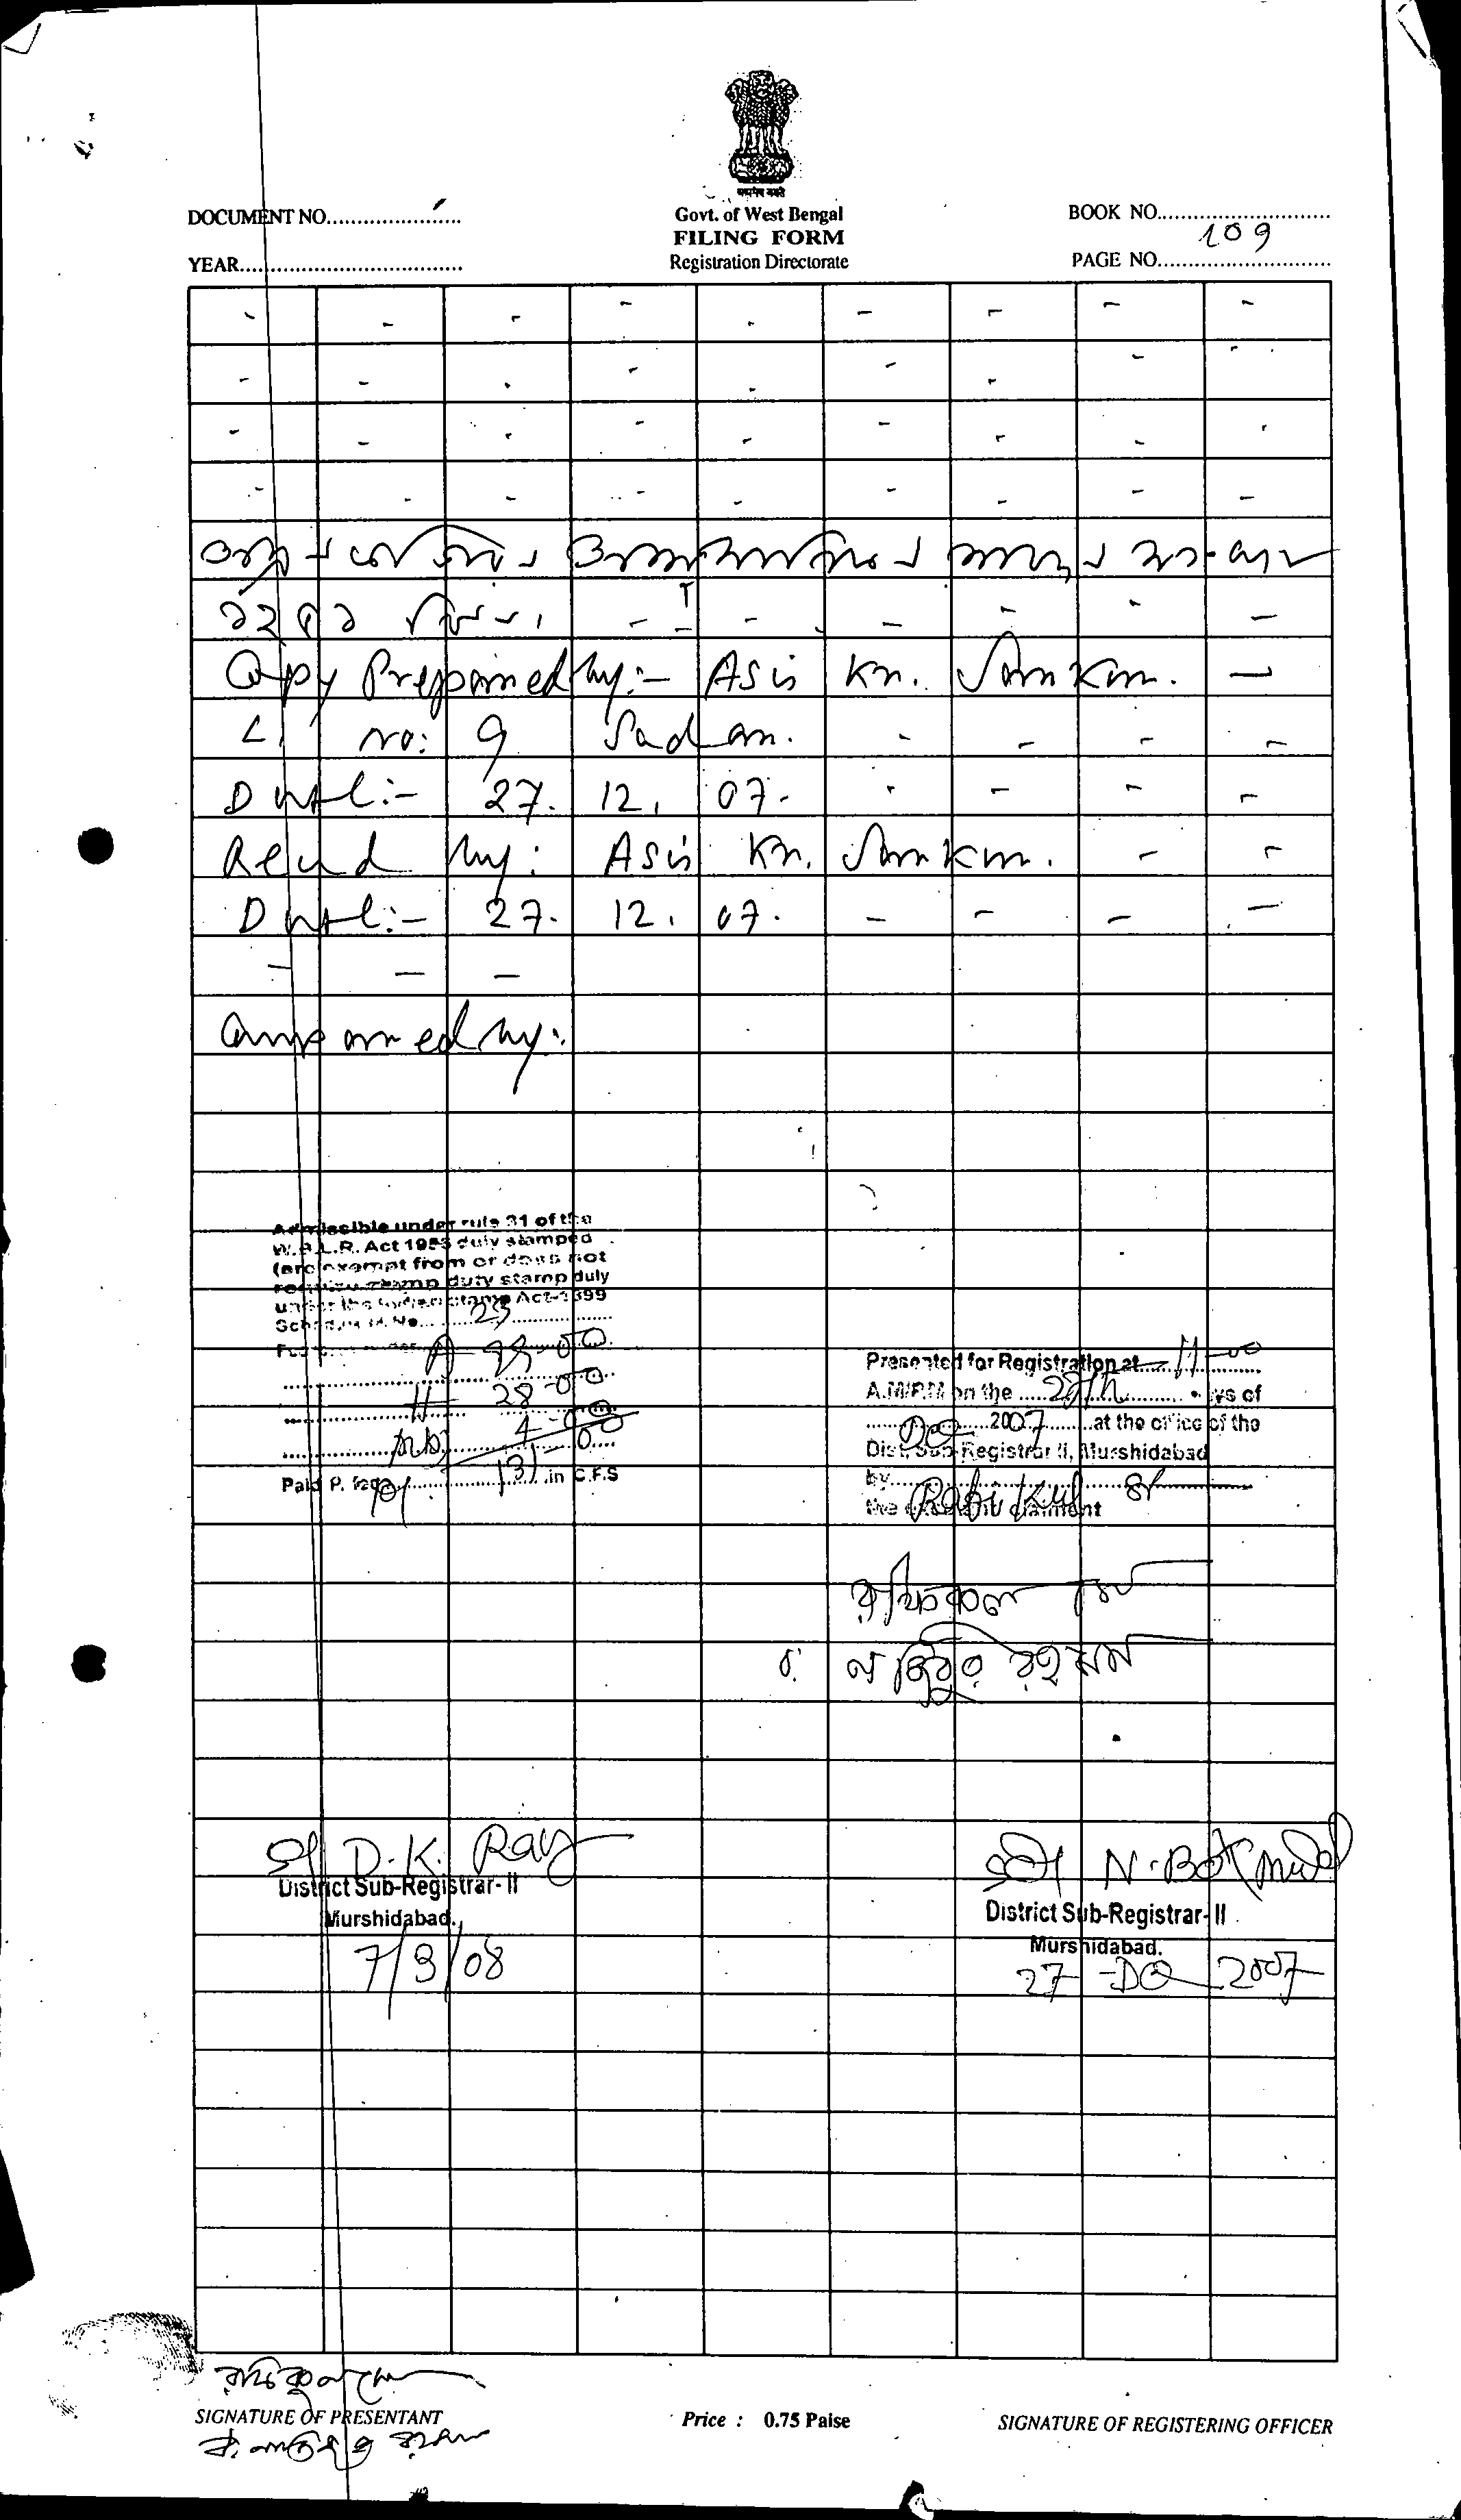 सत्यमेव जयते
DOCUMENT NO......................
Govt. of West Bengal
BOOK NO............................
FILING FORM
109
YEAR.....................................
Registration Directorate
PAGE NO............................
Copy Prepaired by:- Asis Kr. Sarkar. -
L. no: 9 Sadar.
Date:- 27. 12. 07.
Read by: Asis Kr. Sarkar.
Date:- 27. 12. 07.
Compaired by:
Admissible under rule 21 of the
W.B.L.R. Act 1955 duly stamped
(are exempt from or does not
require stamp duty stamp duly
under the Indian stamp Act-1899
Schedule IA No. 23
A
H 28-00
4-00
Paid P. fee 131 in C.F.S
Presented for Registration at 11-00
A.M/P.M on the 27th days of
Dec 2007 at the office of the
Dist, Sub-Registrar II, Murshidabad
by
the claimant
রফিকুল সেখ
ব: নজিবুর রহমান
D. K. Ray
District Sub-Registrar-II
Murshidabad.
7/3/08
N.
District Sub-Registrar-II
Murshidabad.
27 -Dec 2007
রফিকুল সেখ
SIGNATURE OF PRESENTANT
Price : 0.75 Paise
SIGNATURE OF REGISTERING OFFICER
ব: নজিবুর রহমান